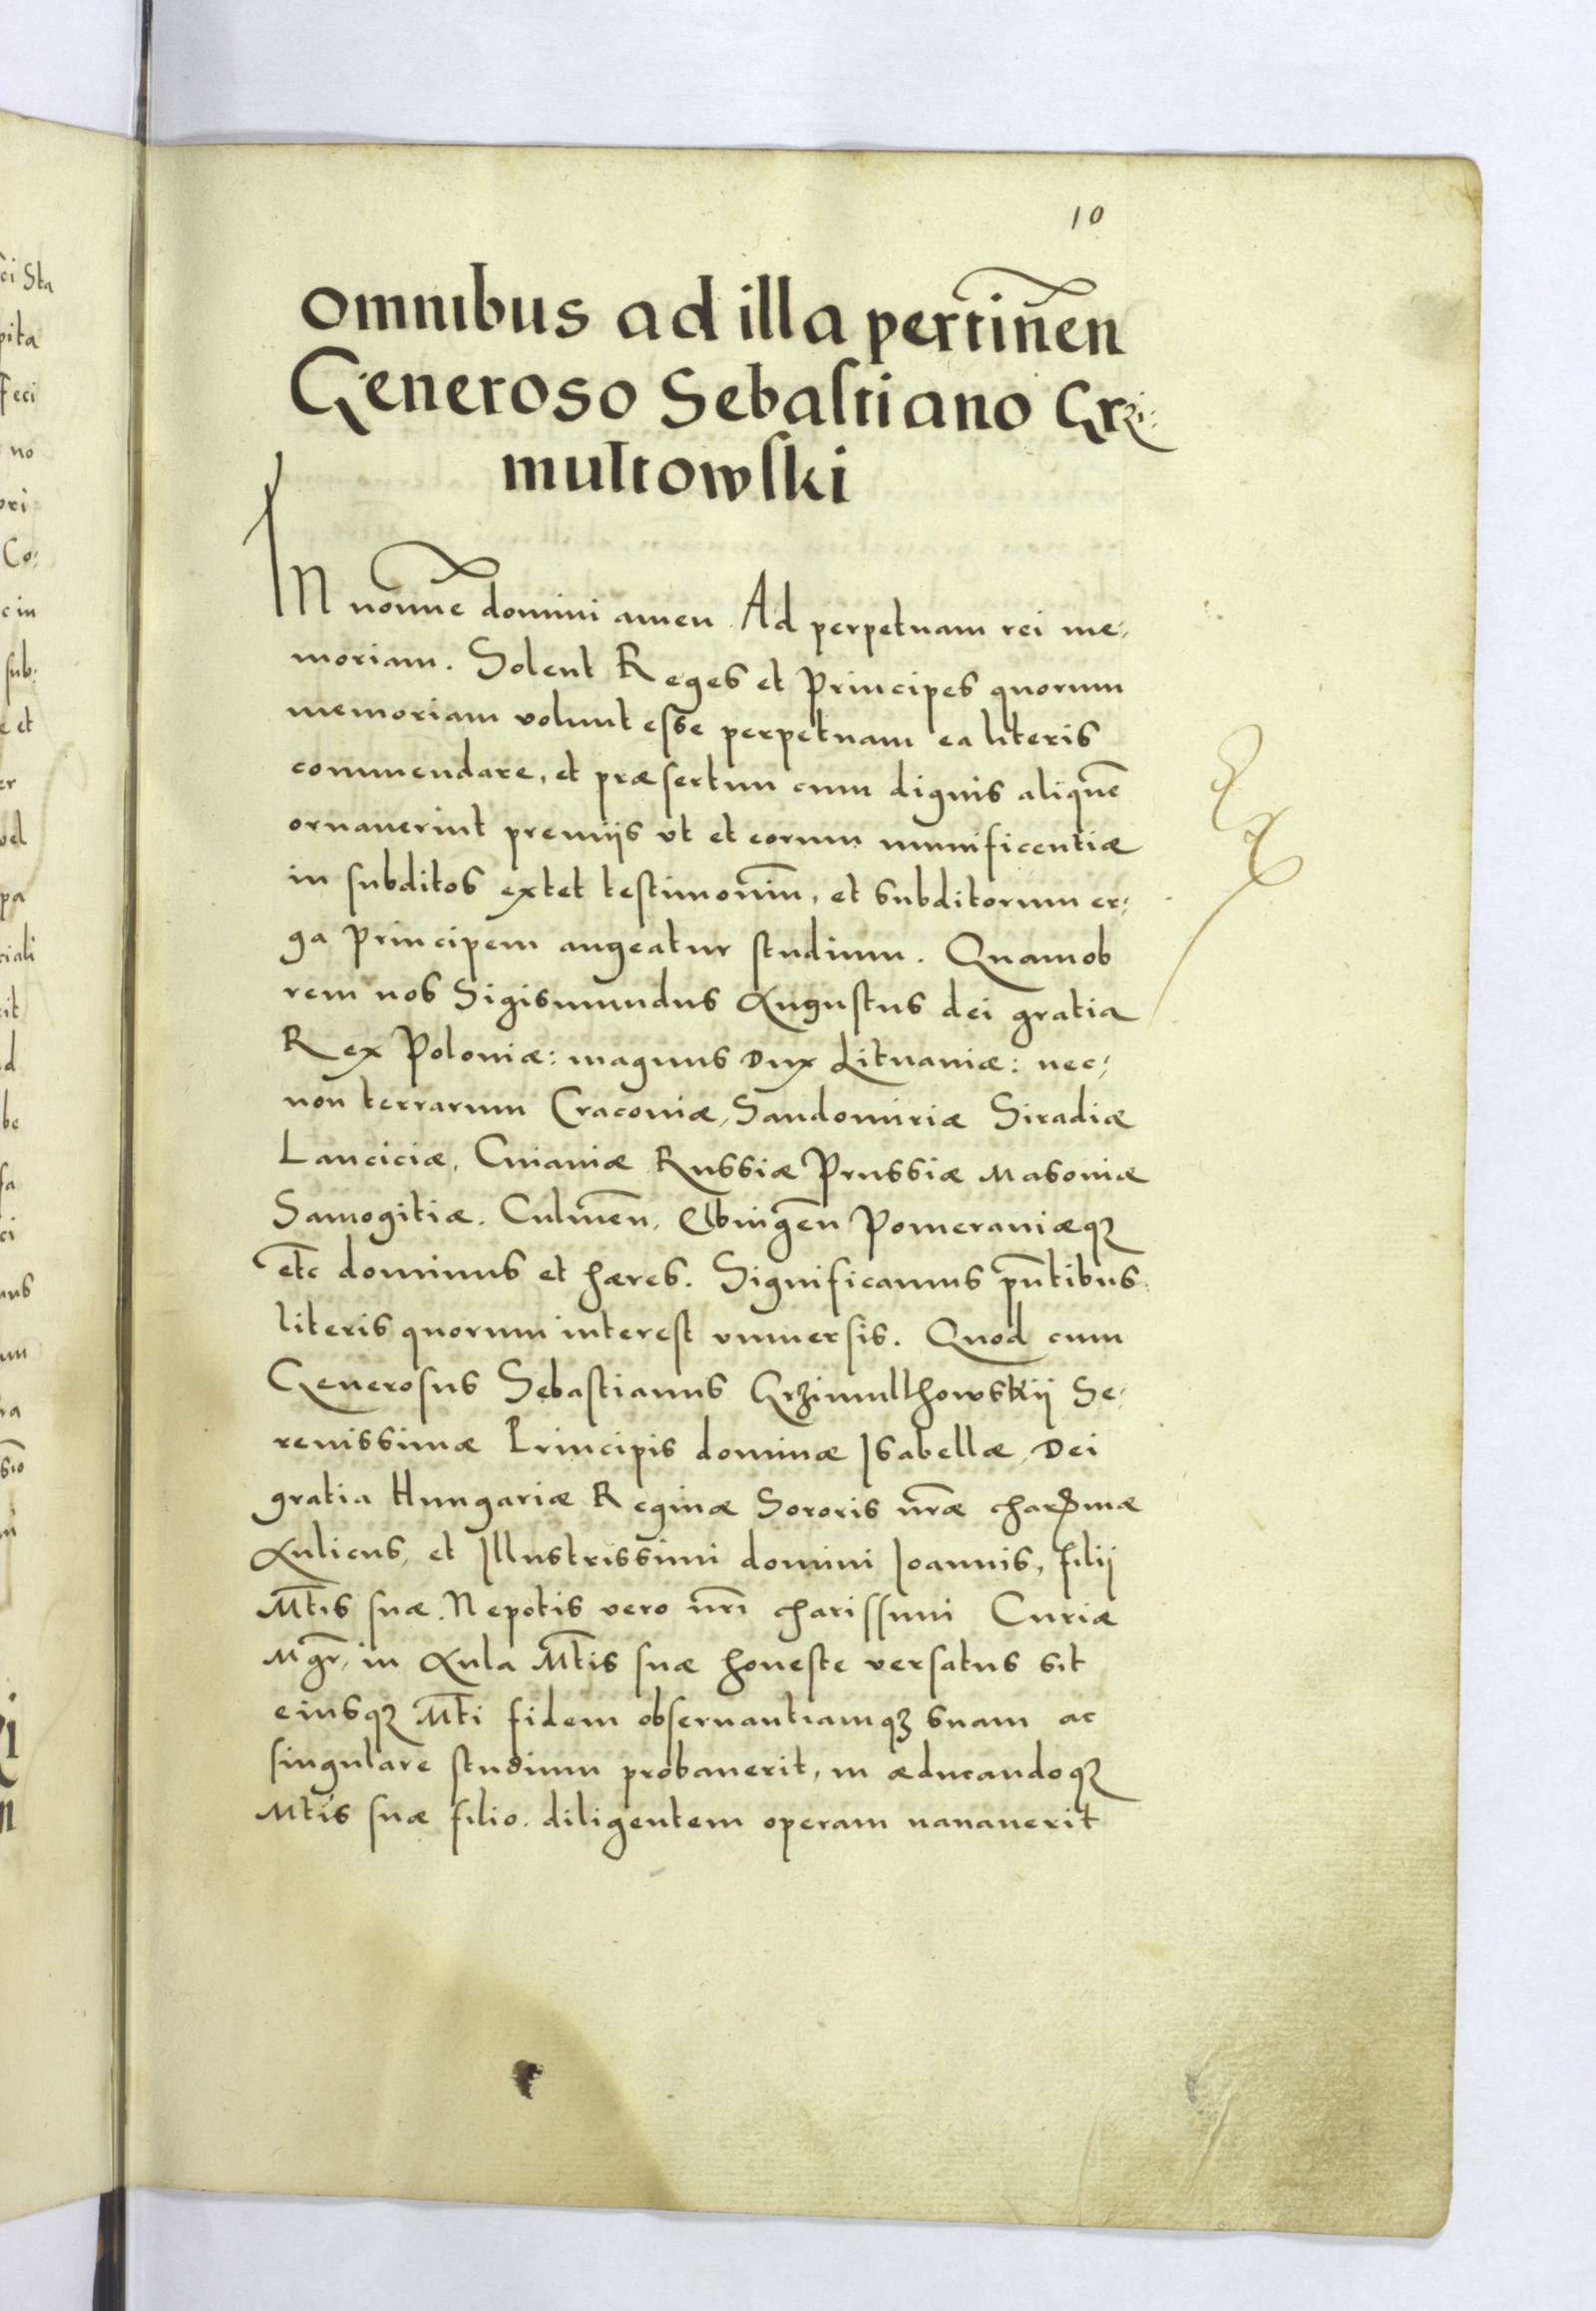 10
omnibus ad illa pertineñ
Generoso Sebastiano Grzi-
multowski
In nomīe domini amen. Ad perpetuam rei me-
moriam. Solent Reges et Principes quorum
memoriam volunt esse perpetuam ea literis
commendare, et præsertim cum dignis aliquē
ornauerint premijs vt et eorum munificentiæ
in subditos extet testimoniū, et subditorum er-
ga Principem augeatur studium. Quamob
rem nos Sigismundus Augustus dei gratia
Rex Poloniæ: magnus Dux Lituaniæ: nec-
non terrarum Cracoviæ, Sandomiriæ Siradiæ
Lanciciæ, Cuiauiæ Russiæ Prussiæ Masouiæ
Samogitiæ. Culmeñ, Elbingeñ Pomeraniæqꝫ
etc̄ dominus et hæres. Significamus pñtibus
literis quorum interest vniuersis. Quod cum
Generosus Sebastianus Grzimulthowskij Se-
renissimæ Principis dominæ Isabellæ, Dei
gratia Hungariæ Reginæ Sororis nr̄æ charß̄mæ
Aulicus, et Illustrissimi domini Ioannis, filij
Mt̄is suæ. Nepotis vero nr̄i charissimi Curiæ
Mgr̄, in Aula Mt̄is suæ honeste versatus sit
eiusqꝫ Mt̄i fidem obseruantiamqꝫ suam ac
singulare studium probauerit, in æducandoqꝫ
Mt̄is suæ filio. diligentem operam nauauerit